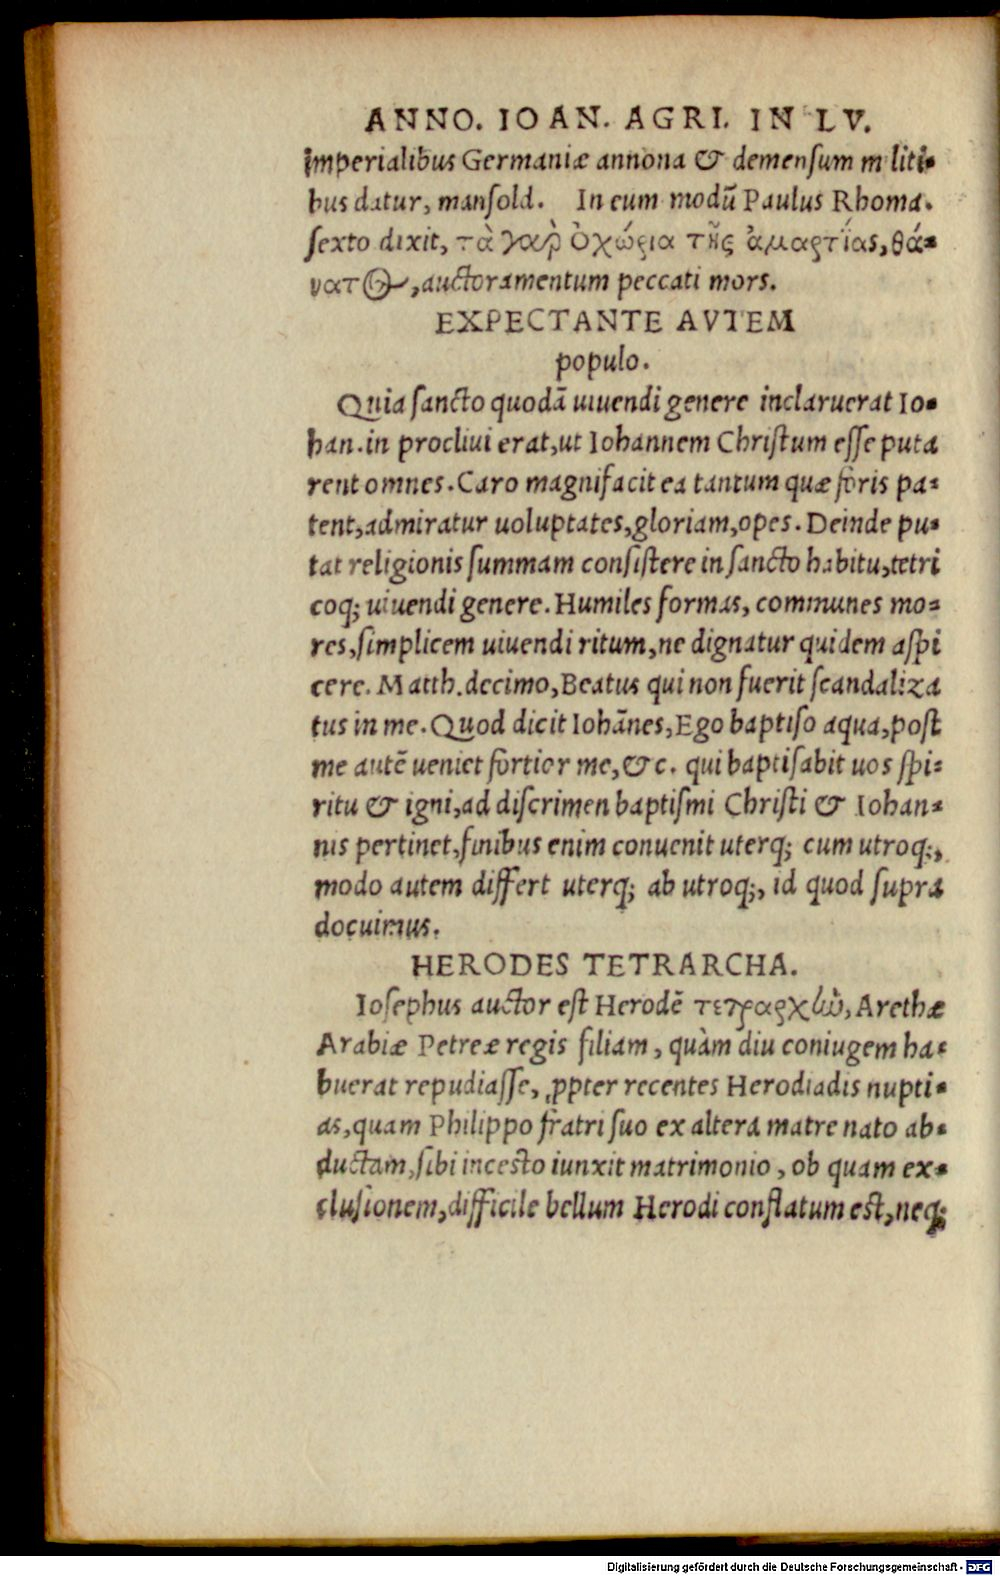 ANNO. IOAN. AGRI. IN LV.
imperialibus Germaniæ annona & demensum militi-
bus datur, mansold. In eum modū Paulus Rhoma.
sexto dixit, τὰ γαρ̀ ὀχώρια τῆς ἁμαρτίας, θά-
νατ⊙, auctoramentum peccati mors.
EXPECTANTE AVTEM
populo.
Quia sancto quodā uiuendi genere inclaruerat Io-
han. in procliui erat, ut Iohannem Christum esse puta
rent omnes. Caro magnifacit ea tantum quæ foris pa-
tent, admiratur uoluptates, gloriam, opes. Deinde pu-
tat religionis summam consistere in sancto habitu, tetri
coq; uiuendi genere. Humiles formas, communes mo-
res, simplicem uiuendi ritum, ne dignatur quidem aspi
cere. Matth. decimo, Beatus qui non fuerit scandaliza
tus in me. Quod dicit Iohānes, Ego baptiso aqua, post
me autē ueniet fortior me, &c. qui baptisabit uos spi-
ritu & igni, ad discrimen baptismi Christi & Iohan-
nis pertinet, finibus enim conuenit uterq; cum utroq;,
modo autem differt uterq; ab utroq;, id quod supra
docuimus.
HERODES TETRARCHA.
Iosephus auctor est Herodē τετραρχlὼ, Arethæ
Arabiæ Petreæ regis filiam, quàm diu coniugem ha-
buerat repudiasse, ꝓpter recentes Herodiadis nupti-
as, quam Philippo fratri suo ex altera matre nato ab-
ductam, sibi incesto iunxit matrimonio, ob quam ex-
clusionem, difficile bellum Herodi conflatum est, neq;
Digitalisierung gefördert durch die Deutsche Forschungsgemeinschaft - DFG